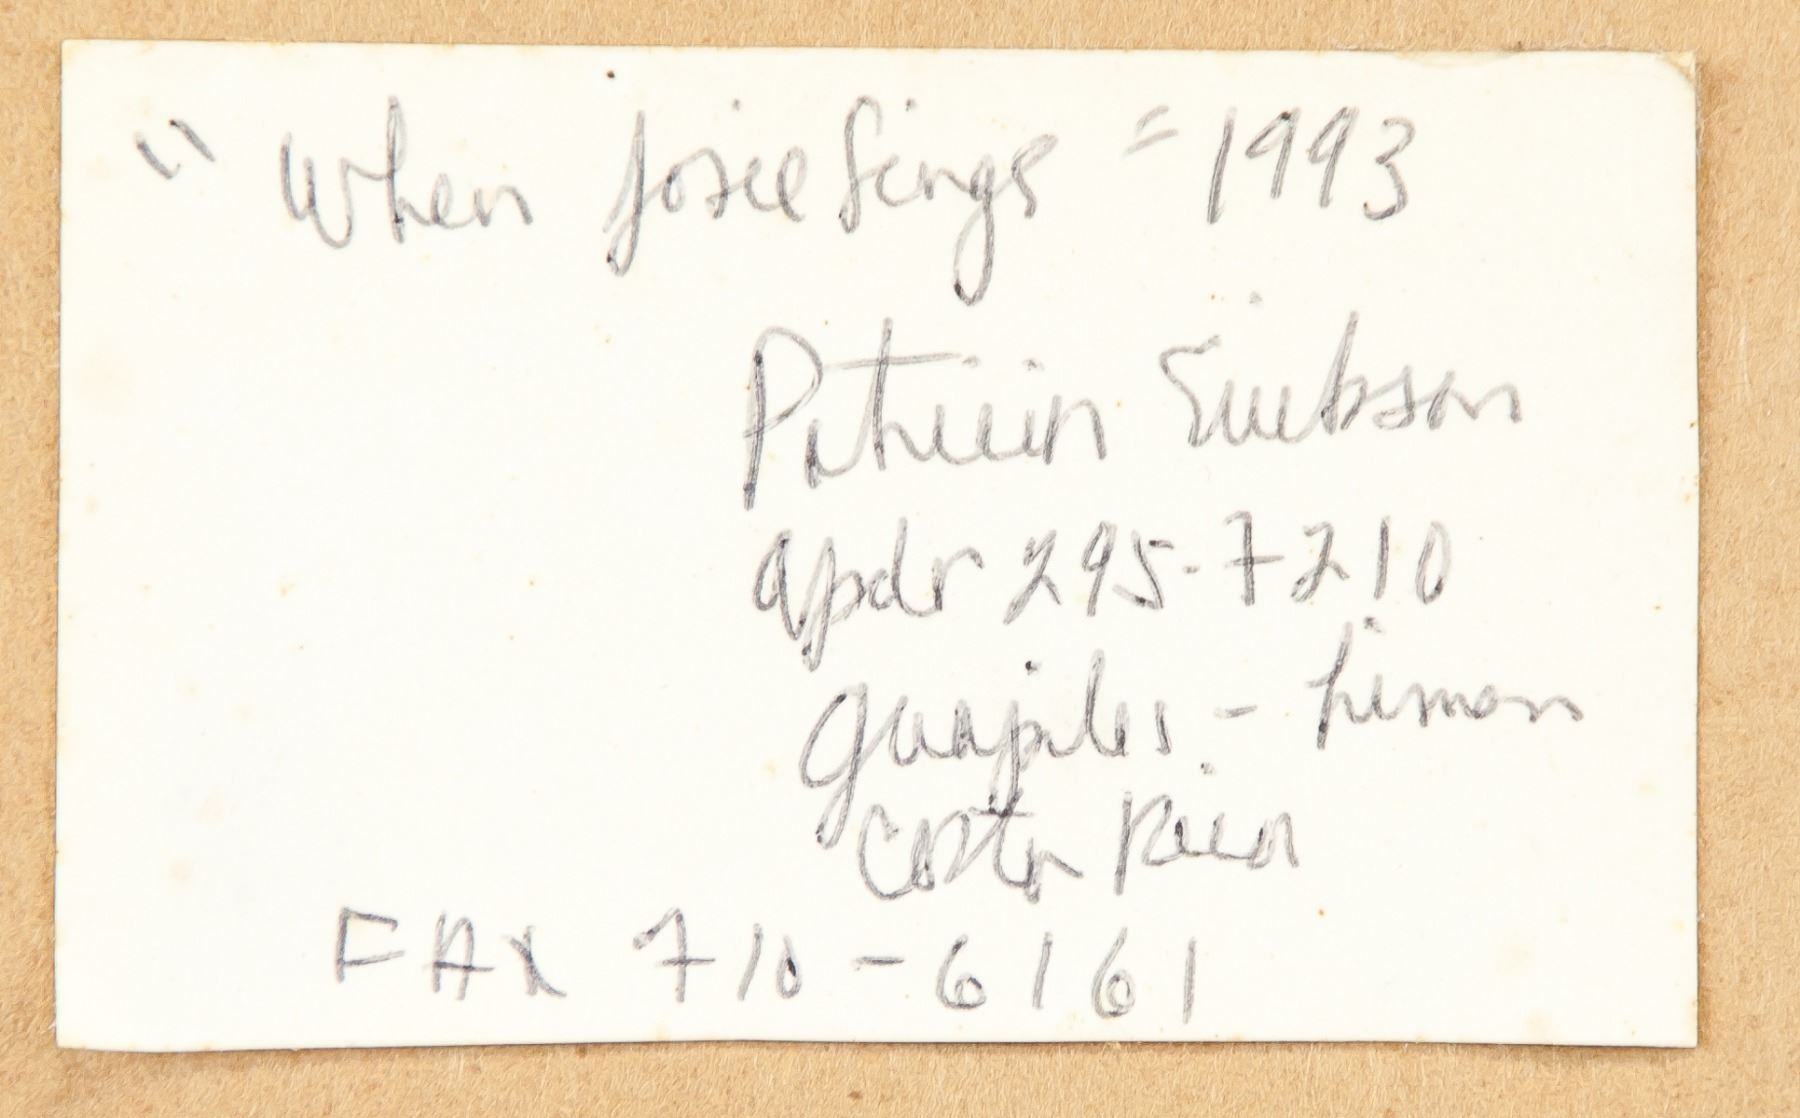 "When Josie Sings" 1993
Patricia Erickson
apdr 295-7210
Guapiles - Limon
Costa Rica
FAX 710-6161